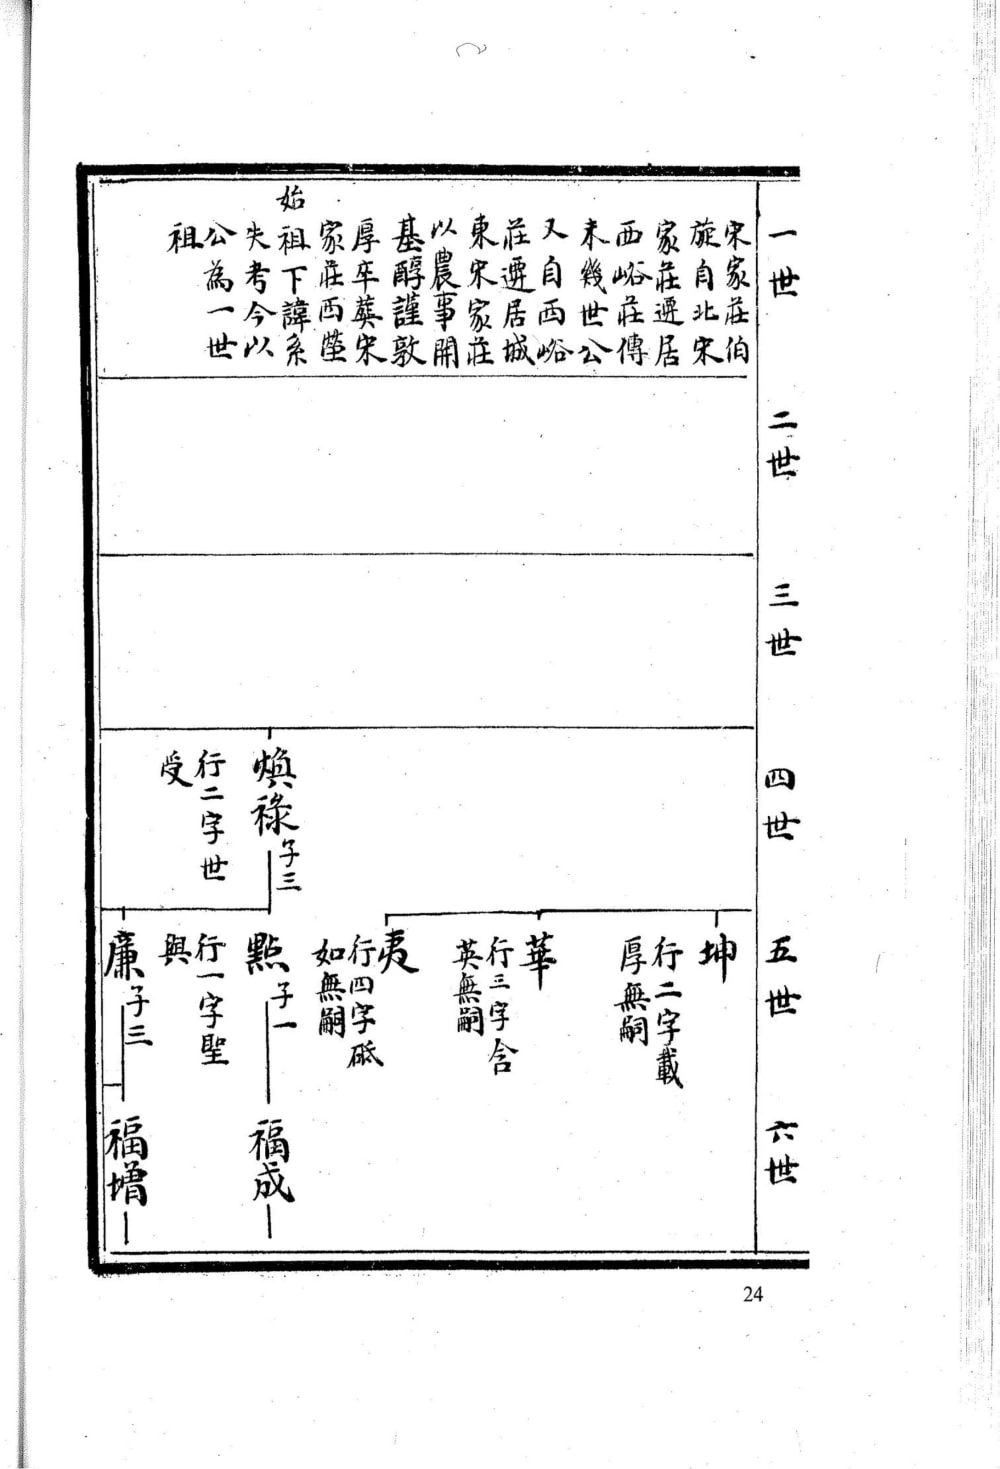 一世
宋家莊伯
旋自北宋
家莊遷居
西峪莊傳
未幾世公
又自西峪
莊遷居城
東宋家莊
以農事開
基醇謹敦
厚卒葬宋
家莊西塋
始祖下諱系
失考今以
公為一世
祖
二世
三世
四世
煥祿 子三
行二字世
受
五世
坤
行二字載
厚無嗣
華
行三字含
英無嗣
夷
行四字砥
如無嗣
點 子一
行一字聖
興
廉 子三
六世
福成
福增
24